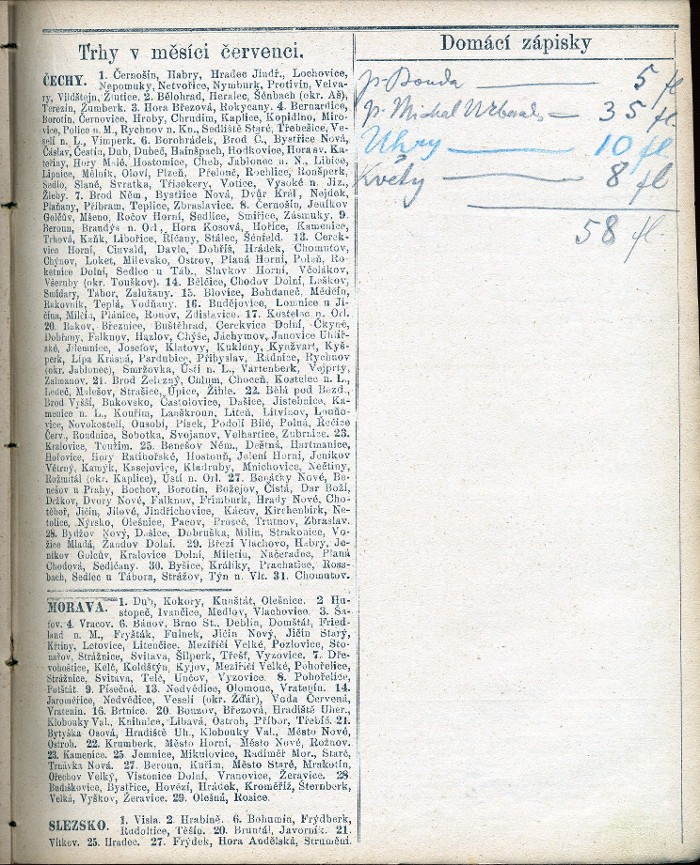 Trhy v měsíci červenci.
ČECHY. 1. Černošín, Habry, Hradec Jindř., Lochovice,
Nepomuky, Netvořice, Nymburk, Protivín, Velva-
ry, Vildštejn, Žlutice. 2. Bělohrad, Heralec, Šénbach (okr. Aš),
Terezín, Žumberk. 3. Hora Březová, Rokycany. 4. Bernardice,
Borotín, Černovice, Hroby, Chrudim, Kaplice, Kopidlno, Miro-
vice, Police n. M., Rychnov n. Kn., Sedliště Staré, Třebešice, Ve-
selí n. L., Vimperk. 6. Borohrádek, Brod Č., Bystřice Nová,
Čáslav, Čestín, Dub, Dubeč, Hainšpach, Hodkovice, Hora sv. Ka-
teřiny, Hory Malé, Hostomice, Cheb, Jablonec n. N., Libice,
Lipnice, Mělník, Oloví, Plzeň, Přelouč, Rochlice, Ronšperk,
Sedlo, Slané, Svratka, Třísekery, Votice, Vysoké n. Jiz.,
Žleby. 7. Brod Něm., Bystřice Nová, Dvůr Král., Nejdek,
Plaňany, Příbram, Teplice, Zbraslavice. 8. Černošín, Jeníkov
Golčův, Mšeno, Ročov Horní, Sedlice, Smiřice, Zásmuky. 9.
Beroun, Brandýs n. Orl., Hora Kosová, Hořice, Kamenice
Trhová, Kaňk, Libořice, Říčany, Stálec, Šénfeld. 13. Cerek-
vice Horní, Cinvald, Davle, Dobříš, Hrádek, Chomutov,
Chýnov, Loket, Milevsko, Ostrov, Planá Horní, Polná, Ro-
ketnice Dolní, Sedlec u Táb., Slavkov Horní, Včelákov,
Všeruby (okr. Touškov). 14. Bělčice, Chodov Dolní, Leškov,
Smidary, Tábor, Zalužany. 15. Blovice, Bohdaneč, Měděšín,
Rakovník, Teplá, Vodňany. 16. Budějovice, Lomnice u Ji-
čína, Milčín, Plánice, Ronov, Zdislavice. 17. Kostelec n. Orl.
20. Bakov, Březnice, Buštěhrad, Cerekvice Dolní, Čkyně,
Dobřany, Falknov, Hazlov, Chýše, Jáchymov, Janovice Uhlíř-
ské, Jilemnice, Josefov, Klatovy, Kukleny, Kynžvart, Kyš-
perk, Lípa Krásná, Pardubice, Přibyslav, Rádnice, Rychnov
(okr. Jablonec), Smržovka, Ústí n. L., Vartenberk, Vejprty,
Zalmanov. 21. Brod Železný, Chlum, Choceň, Kostelec n. L.,
Ledeč, Malešov, Strašice, Úpice, Žihle. 22. Bělá pod Bezd.,
Brod Vyšší, Bukovsko, Častolovice, Dašice, Jistebnice, Ka-
menice n. L., Kouřim, Lanškroun, Liteň, Litvínov, Louňo-
vice, Novokostelí, Ousobí, Písek, Podolí Bílé, Polná, Řečice
Červ., Roudnice, Sobotka, Svojanov, Velhartice, Zubrnice. 23.
Kralovice, Toužim. 25. Benešov Něm., Deštná, Hartmanice,
Hořovice, Hory Ratibořské, Hostouň, Jelení Horní, Jeníkov
Větrný, Kamýk, Kasejovice, Kladruby, Mnichovice, Nečtiny,
Rožmitál (okr. Kaplice), Ústí n. Orl. 27. Benátky Nové, Be-
nešov u Prahy, Bochov, Borotín, Božejov, Čistá, Dar Boží,
Držkov, Dvory Nové, Falknov, Frimburk, Hrady Nové, Cho-
těboř, Jičín, Jílové, Jindřichovice, Kácov, Kirchenbirk, Ne-
tolice, Nýrsko, Olešnice, Pacov, Proseč, Trutnov, Zbraslav.
28. Bydžov Nový, Dašice, Dobruška, Milín, Strakonice, Vo-
žice Mladá, Žandov Dolní. 29. Březí Vlachovo, Habry, Je-
níkov Golčův, Kralovice Dolní, Miletín, Načeradec, Planá
Chodová, Sedlčany. 30. Byšice, Králíky, Prachatice, Ross-
bach, Sedlec u Tábora, Strážov, Týn n. Vlt. 31. Chomutov.
MORAVA. 1. Dub, Kokory, Kunštát, Olešnice. 2 Hu-
stopeč, Ivančice, Medlov, Vlachovice. 3. Ša-
fov. 4. Vracov. 6. Bánov, Brno St., Deblín, Domštát, Fried-
land n. M., Fryšták, Fulnek, Jičín Nový, Jičín Starý,
Křtiny, Letovice, Litenčice, Meziříčí Velké, Pozlovice, Sto-
nařov, Strážnice, Svitava, Šilperk, Třešť, Vyzovice. 7. Dře-
vohostice, Kelč, Koldštýn, Kyjov, Meziříčí Velké, Pohořelice,
Strážnice, Svitava, Telč, Uničov, Vyzovice. 8. Pohořelice,
Potštát. 9. Písečné. 13. Nedvědice, Olomouc, Vratenín. 14.
Jaroměřice, Nedvědice, Veselí (okr. Žďár), Voda Červená,
Vratenín. 16. Brtnice. 20. Bouzov, Březová, Hradiště Uher.,
Klobouky Val., Knihnice, Libavá, Ostroh, Příbor, Třebíč. 21.
Bytyška Osová, Hradiště Uh., Klobouky Val., Město Nové,
Ostroh. 22. Krumberk, Město Horní, Město Nové, Rožnov.
23. Kamenice. 25. Jemnice, Mikulovice, Radiměř Mor., Staré,
Trnávka Nová. 27. Beroun, Kuřim, Město Staré, Mrákotín,
Ořechov Velký, Vistonice Dolní, Vranovice, Žeravice. 28
Badiškovice, Bystřice, Hovězí, Hrádek, Kroměříž, Šternberk,
Velká, Vyškov, Žeravice. 29. Olešná, Rosice.
SLEZSKO. 1. Visla. 2. Hrabině. 6. Bohumín, Frýdberk,
Rudoltice, Těšín. 20. Bruntál, Javorník. 21.
Vítkov. 25. Hradec. 27. Frýdek, Hora Andělská, Strumění.
Domácí zápisky
p. Bouda — 5 fl
p. Michal — 35 fl
Uhry — 10 fl
Květy — 8 fl
58 fl.